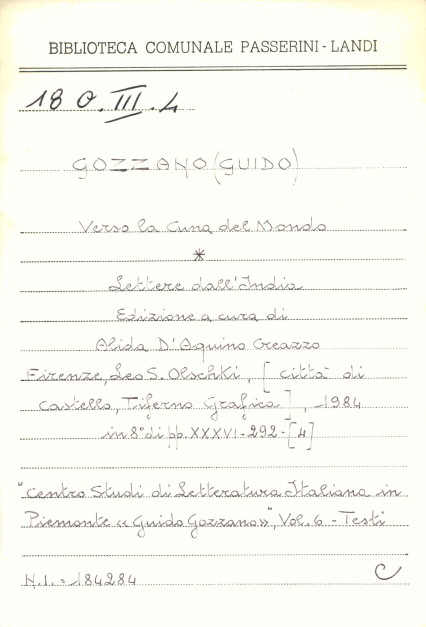 BIBLIOTECA COMUNALE PASSERINI - LANDI
18 O. III. 4
GOZZANO (GUIDO)
Verso la Cuna del Mondo
*
Lettere dall'India
Edizione a cura di
Alida D'Aquino Creazzo
Firenze, Leo S. Olschki, [città di
Castello, Tiferno Grafica], 1984
in 8° di pp. XXXVI-292-[4]
"Centro Studi di Letteratura Italiana in
Piemonte «Guido Gozzano»", Vol. 6 - Testi
N.I. = 184284 C